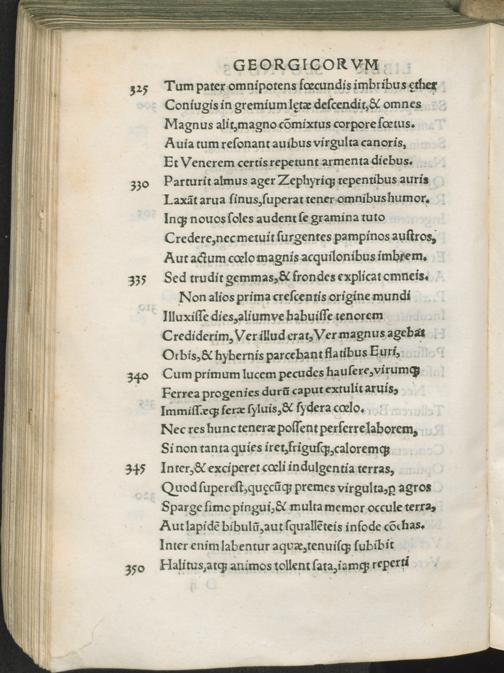 GEORGICORVM
325 Tum pater omnipotens fœcundis imbribus ęther
Coniugis in gremium lętæ deſcendit,& omnes
Magnus alit,magno cōmixtus corpore fœtus.
Auia tum reſonant auibus virgulta canoris,
Et Venerem certis repetunt armenta diebus.
330 Parturit almus ager Zephyriq; tepentibus auris
Laxāt arua ſinus,ſuperat tener omnibus humor.
Inq; nouos ſoles audent ſe gramina tuto
Credere,nec metuit ſurgentes pampinos auſtros,
Aut actum cœlo magnis acquilonibus imbrem.
335 Sed trudit gemmas,& frondes explicat omneis.
Non alios prima creſcentis origine mundi
Illuxiſſe dies,aliumve habuiſſe tenorem
Crediderim,Ver illud erat,Ver magnus agebat
Orbis,& hybernis parcebant flatibus Euri,
340 Cum primum lucem pecudes hauſere,virumq;
Ferrea progenies durū caput extulit aruis,
Immiſſæq; feræ ſyluis,& ſydera cœlo.
Nec res hunc teneræ poſſent perferre laborem,
Si non tanta quies iret,frigusq;,caloremq;
345 Inter,& exciperet cœli indulgentia terras,
Quod ſupereſt,quęcūq; premes virgulta,ꝑ agros
Sparge fimo pingui,& multa memor occule terra,
Aut lapidē bibulū,aut ſquallēteis infode cōchas.
Inter enim labentur aquæ,tenuiſq; ſubibit
350 Halitus,atq; animos tollent ſata,iamq; reperti